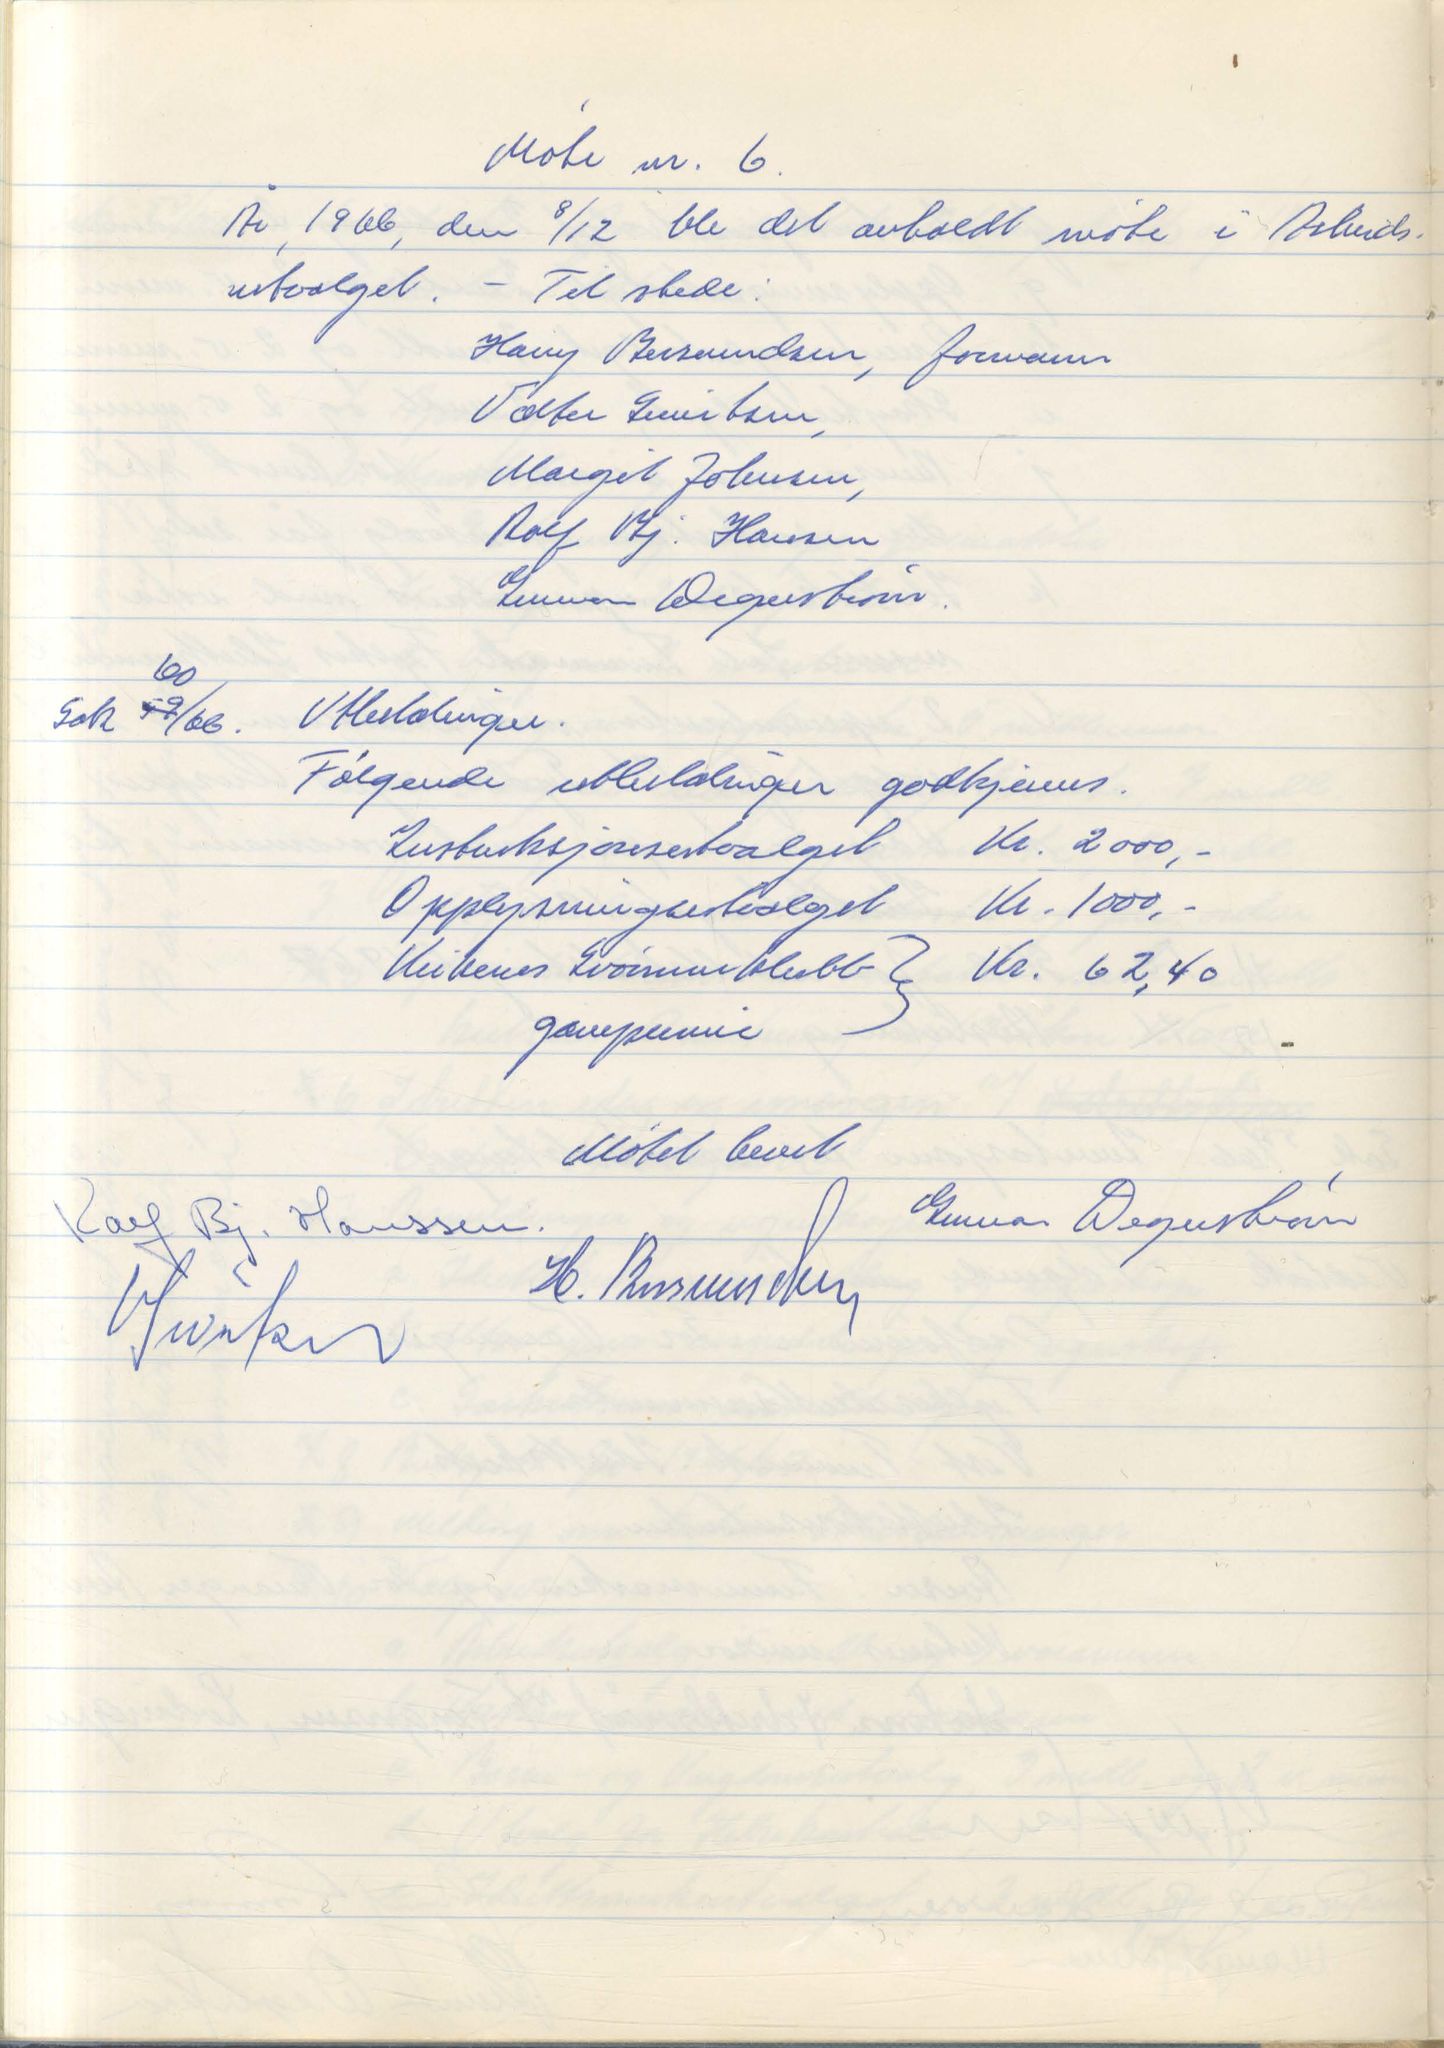 Møte nr. 6.
År, 1966, den 8/12 ble det avholdt møte i Arbeids-
utvalget. - Til stede:
Harry Bersvendsen, formann
Valter Gerritsen,
Margit Johnsen,
Rolf Bj. Hansen
Gunnar Wegerstrøm.
60
Sak 59/66. Utbetalinger.
Følgende utbetalinger godkjennes.
Instruksjonsutvalget Kr. 2000,-
Opplysningsutvalget Kr. 1000,-
Kirkenes Svømmeklubb } Kr. 62,40
gavepremie
Møtet hevet
Rolf Bj. Hanssen. Gunnar Wegerstrøm
H.